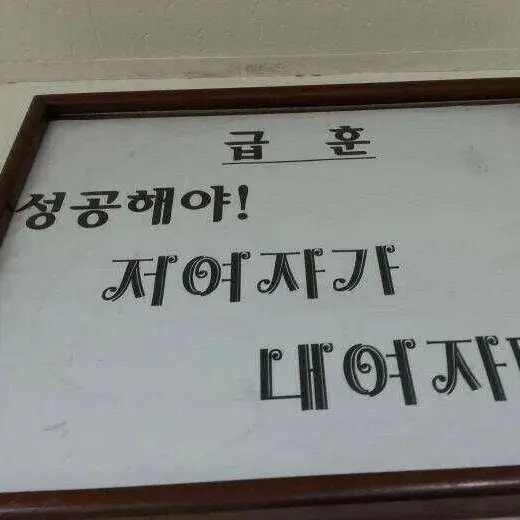 급 훈
성공해야!
저여자가
내여자